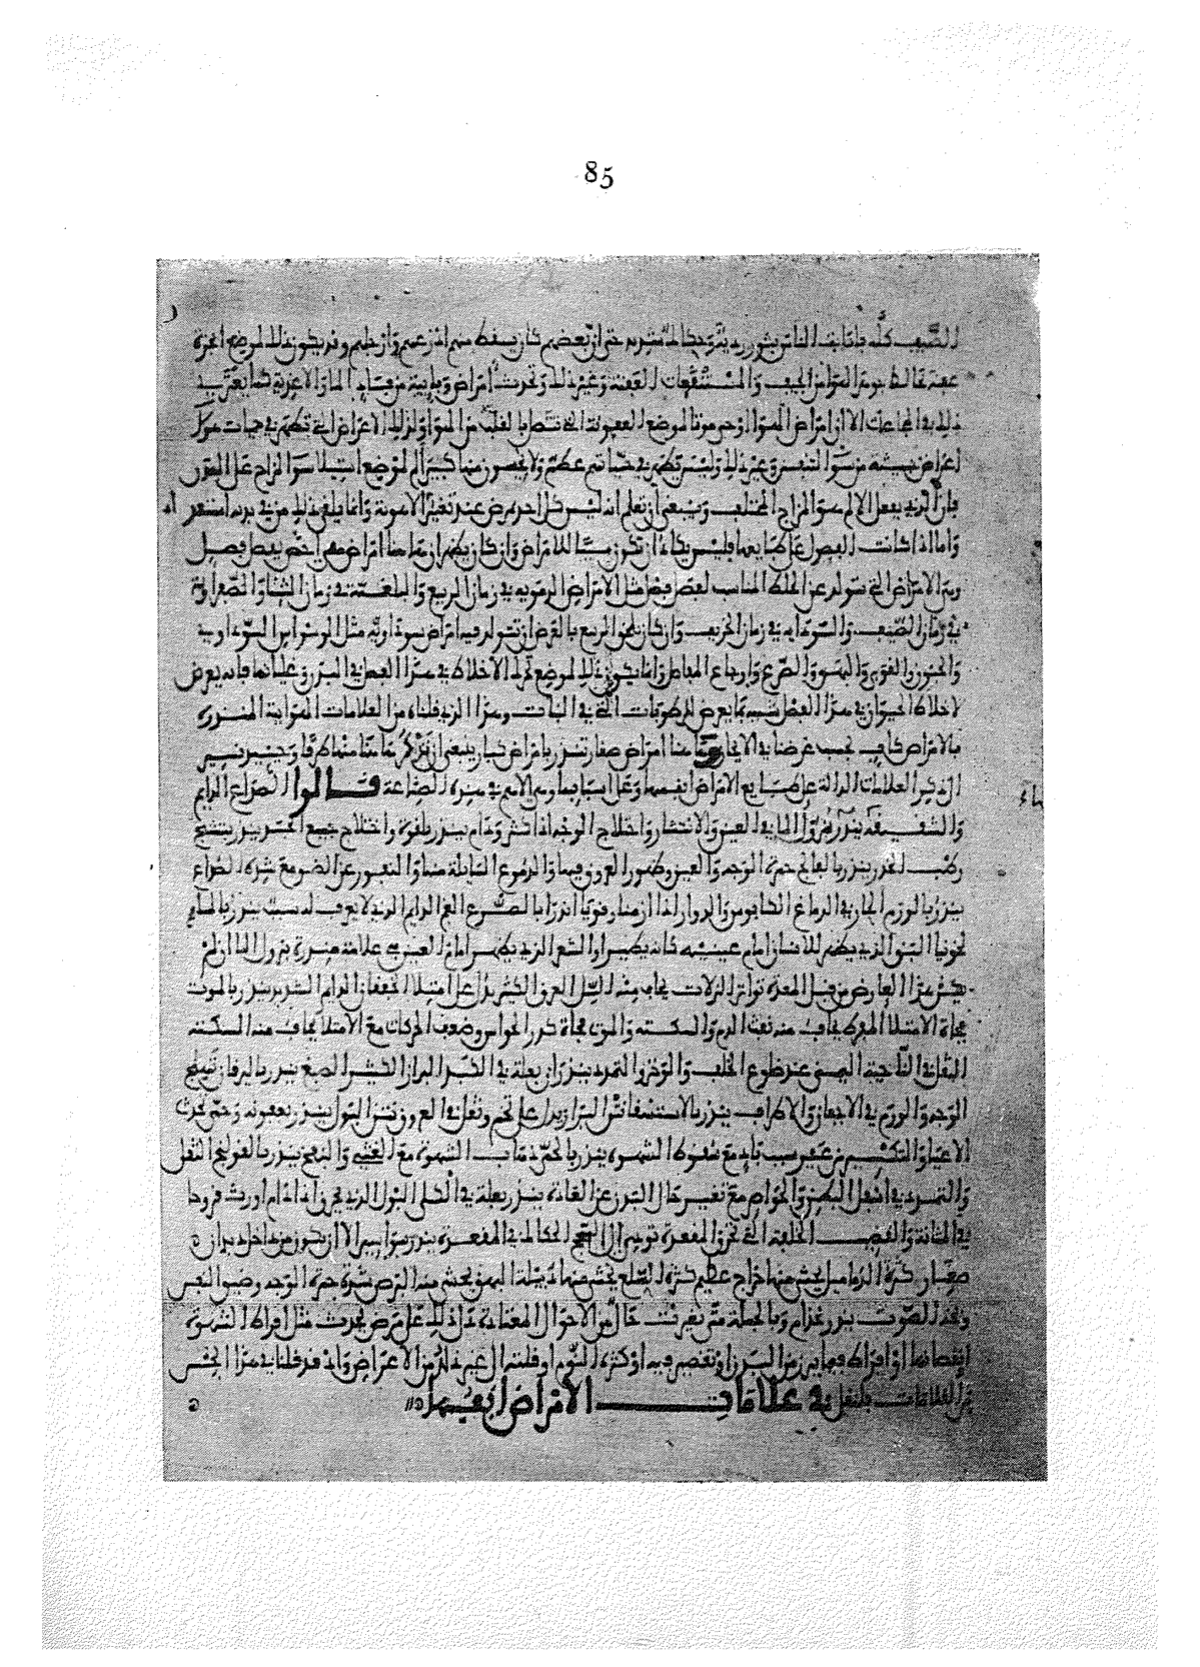 85
الصيف كله فاصاب الناس بثور رديئة وحكاك شديد حتى ان بعضهم كان يسقط منهم اذرعهم وارجلهم وقد يكون ذلك لموضع ابخرة
عفنة تخالط جوهر الهوا من الجيف والمستنقعات العفنة وغير ذلك وتحدث امراض وبايية من فساد الما والاغذية كما يعترى
ذلك في المجاعات الا ان امراض الهوا اوحى موتا لموضع العفونة التي تتصل بالقلب من الهوا ولذلك الاعراض التي تظهر في حميات هولا
اعراض خبيثة من سوا التنفس وغير ذلك وليس تظهر في حمياتهم عظم ولا يحسون منها كبير الم لموضع استيلا سوا المزاج على البدن
فان الذي يفعل الالم سو المزاج المختلف وينبغي ان تعلم انه ليس كل احد يمرض عند تغير الاهوية وانما يلقى ذلك من في بدنه استعداد
واما اذا كانت الفصول على طبايعها فليس يكاد ان تكون سببا للامراض وان كان يظهر ان هاهنا امراض هي اخص بفصل فصل
وهي الامراض التي تتولد عن الخلط المناسب لفصل فصل مثل الامراض الدموية في زمان الربيع والبلغمية في زمان الشتا والصفراوية
في زمان الصيف والسوداوية في زمان الخريف وان كان يلحق الربيع بالعرض ان تتولد فيه امراض سوداوية مثل الوسواس السوداوية
والجنون والقوبي والبهق والصرع واوجاع المفاصل وانما يكون ذلك لموضع تحرك الاخلاط في هذا الفصل في البدن وغليانها فانه يعرض
لاخلاط الحيوان في هذا الفصل شبيه بما يعرض للرطوبات التي في النبات وهذا الذي قلناه من العلامات الهوايية المنذرة
بالامراض كاف بحسب غرضنا في الايجاز وهاهنا امراض صغار تنذر بامراض كبار ينبغي ان نذكر هاهنا منها طرفا وحينيذ نسير
الى ذكر العلامات الدالة على طبايع الامراض انفسها وعلى اسبابها وهي الاهم في هذه الصناعة قالوا الصداع الدايم
والشقيقة ينذران بنزول الما في العين والانتشار واختلاج الوجه اذا كثر ودام ينذر بلقوة واختلاج جميع الجسد ينذر بتشنج
رطب الخدر ينذر بالفالج حمرة الوجه والعين وظهور العروق فيها والدموع السايلة منها والنفور عن الضو مع شدة الصداع
ينذر بالورم الحار في الدماغ الكابوس والدوار اذا ازمنا وقويا انذرا بالصرع الغم الدايم الذي لا يعرف له سبب ينذر بالمالي
خوليا البق الذي يظهر للانسان امام عينيه كانه يطير او الشعر الذي يظهر امام العين هي علامة منذرة بنزول الما ان لم
يكن هذا العارض من قبل المعدة تواتر النزلات يخاف منه السل العرق الكثير يدل على امتلا الخفقان الدايم الشديد ينذر بالموت
فجاة الامتلا المفرط يخاف منه نفث الدم والسكتة والموت فجاة كدر الحواس وضعف الحركات مع الامتلا يخاف منه السكتة
الثقل في الناحية اليمنى عند ضلوع الخلف والوخز والتمدد ينذران بعلة في الكبد البراز الكثير الصبغ ينذر باليرقان تهيج
الوجه والورم في الاجفان والاطراف ينذر بالاستسقا نتن البراز يدل على تخم وثقل في العروق نتن البول ينذر بعفونة وحمى تحدث
الاعيا والتكسير من غير سبب باد مع سقوط الشهوة ينذر بالحمى ذهاب الشهوة مع الغثي والنفخ ينذر بالقولنج الثقل
والتمدد في اسفل البطن والخواصر مع تغير حال البراز عن العادة ينذر بعلة في الكلى البول الذي يحرق اذا دام اورث قروحا
في المثانة والقضيب الخلفة التي تحرق المقعدة تودي الى السحج الحكاك في المقعدة ينذر ببواسير الا ان يكون من داخل ديدان
صغار كثرة الدماميل يخشى منها خراج عظيم كثرة السلع يخشى منها دبيلة البهق يخشى منه البرص شدة حمرة الوجه وضيق النفس
وبحة الصوت ينذر بجذام وبالجملة متى تغيرت حال من الاحوال المعتادة دل ذلك على مرض يحدث مثل افراط الشهوة
او نقصانها او افراط فيما يبرز من البدن او تقصير فيه او كثرة النوم او قلته الى غير ذلك من الاعراض واذ قد قلنا في هذا الجنس
من العلامات فلنقل في علامات الامراض انفسها